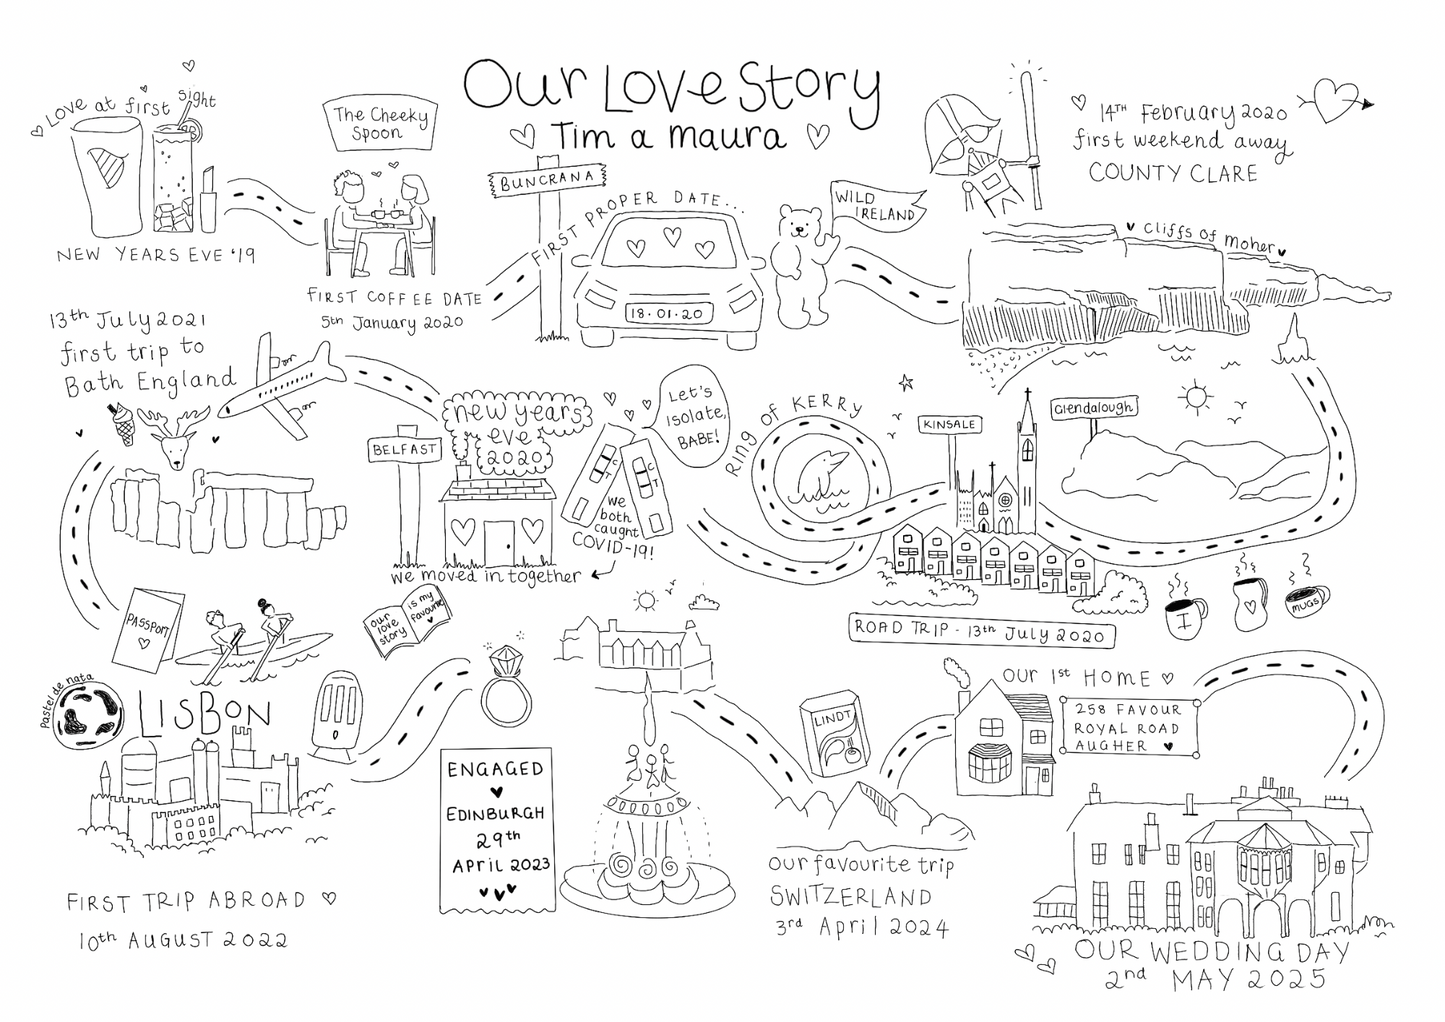 Our Love Story
Tim a maura
Love at first sight
NEW YEARS EVE '19
The Cheeky
Spoon
FIRST COFFEE DATE
5th January 2020
BUNCRANA
FIRST PROPER DATE...
18.01.20
WILD
IRELAND
14TH February 2020
first weekend away
COUNTY CLARE
Cliffs of Moher
Glendalough
KINSALE
Ring of KERRY
ROAD TRIP - 13th July 2020
I
MUGS
Let's
isolate,
BABE!
C
T
C
T
we
both
caught
COVID-19!
new years
eve
2020
BELFAST
we moved in together
13th July 2021
first trip to
Bath England
PASSPORT
Pastel de nata
LISBON
FIRST TRIP ABROAD
10th AUGUST 2022
our
love
story
is my
favourite
ENGAGED
EDINBURGH
29th
April 2023
LINDT
our favourite trip
SWITZERLAND
3rd April 2024
OUR 1st HOME
258 FAVOUR
ROYAL ROAD
AUGHER
OUR WEDDING DAY
2nd MAY 2025